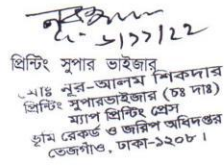 ৮/১১/২২
প্রিন্টিং সুপার ভাইজার
মোঃ নূর-আলম শিকদার
প্রিন্টিং সুপারভাইজার (চঃ দাঃ)
ম্যাপ প্রিন্টিং প্রেস
ভূমি রেকর্ড ও জরিপ অধিদপ্তর
তেজগাঁও, ঢাকা-১২০৮।